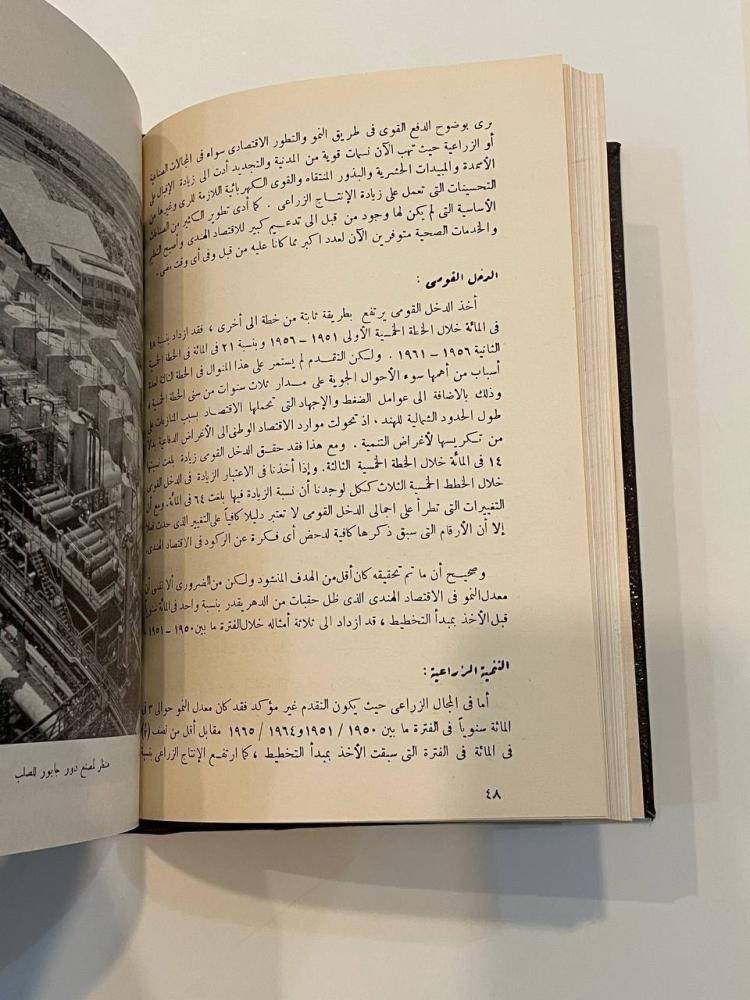 يرى بوضوح الدفع القوى فى طريق النمو والتطور الاقتصادى سواء فى المجالات الصناعية
أو الزراعية حيث تهب الآن نسمات قوية من المدنية والتجديد أدت الى زيادة الإقبال على
الأسمدة والمبيدات الحشرية والبذور المنتقاه والقوى الكهربائية اللازمة للرى وغيرها من
التحسينات التى تعمل على زيادة الإنتاج الزراعى . كما أدى تطوير الكثير من الصناعات
الأساسية التى لم يكن لها وجود من قبل الى تدعيم كبير للاقتصاد الهندى وأصبح التعليم
والخدمات الصحية متوفرين الآن لعدد اكبر مما كانا عليه من قبل وفى أى وقت مضى .
الدخل القومى :
أخذ الدخل القومى يرتفع بطريقة ثابتة من خطة الى أخرى ، فقد ازداد بنسبة ١٨
فى المائة خلال الخطة الخمسية الأولى ١٩٥١ - ١٩٥٦ وبنسبة ٢١ فى المائة فى الخطة الخمسية
الثانية ١٩٥٦ - ١٩٦١ . ولكن التقدم لم يستمر على هذا المنوال فى الخطة الثالثة لعدة
أسباب من أهمها سوء الأحوال الجوية على مدار ثلاث سنوات من سنى الخطة الخمسية ،
وذلك بالاضافة الى عوامل الضغط والإجهاد التى تحملها الاقتصاد بسبب المنازعات على
طول الحدود الشمالية للهند . اذ تحولت موارد الاقتصاد الوطنى الى الأغراض الدفاعية بدلا
من تكريسها لأغراض التنمية . ومع هذا فقد حقق الدخل القومى زيادة بلغت نسبتها
١٤ فى المائة خلال الخطة الخمسية الثالثة . وإذا أخذنا فى الاعتبار الزيادة فى الدخل القومى
خلال الخطط الخمسية الثلاث ككل لوجدنا أن نسبة الزيادة فيها بلغت ٦٤ فى المائة . ومع أن
التغييرات التى تطرأ على اجمالى الدخل القومى لا تعتبر دليلا كافياً على التغيير الذى حدث فعلا
إلا أن الأرقام التى سبق ذكرها كافية لدحض أى فكرة عن الركود فى الاقتصاد الهندى .
وصحيح أن ما تم تحقيقه كان أقل من الهدف المنشود ولكن من الضرورى ألا ننسى أن
معدل النمو فى الاقتصاد الهندى الذى ظل حقبات من الدهر يقدر بنسبة واحد فى المائة سنوياً
قبل الأخذ بمبدأ التخطيط ، قد ازداد الى ثلاثة أمثاله خلال الفترة ما بين ١٩٥٠ - ١٩٥١
التنمية الزراعية :
أما فى المجال الزراعى حيث يكون التقدم غير مؤكد فقد كان معدل النمو حوالى ٣ فى
المائة سنوياً فى الفترة ما بين ١٩٥٠ / ١٩٥١ و ١٩٦٤ / ١٩٦٥ مقابل أقل من نصف (½)
فى المائة فى الفترة التى سبقت الأخذ بمبدأ التخطيط ، كما ارتفع الإنتاج الزراعى بنسبة
٤٨
منظر لمصنع دور جابور للصلب